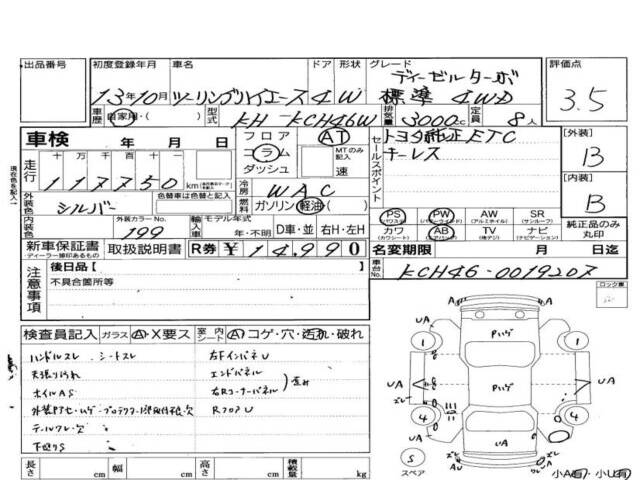 出品番号 初度登録年月 車名 ドア 形状 グレード 評価点
ディーゼルターボ
13年10月 ツーリングハイエース 4 W 標準 4WD 3.5
車歴 自家用・( ) 型式 KH-KCH46W 排気量 3000cc 定員 8人
車検 年 月 日
フロア コラム ダッシュ
AT
MTのみ記入
速
セールスポイント
トヨタ純正ETC
キーレス
【外装】
B
【内装】
B
走行 十 万 千 百 十 一
117750 km
冷房 WAC
燃料 ガソリン・軽油・( )
外装色 シルバー 色替車と記入
内装色 外装カラーNo. 199
輸入車 モデル年式 年・不明 D車・並 右H・左H
PS (パワステ) PW (パワーウインド) AW (アルミホイル) SR (サンルーフ)
カワ (カワシート) AB (エアバッグ) TV (地デジ) ナビ (ナビゲーション)
純正品のみ丸印
新車保証書 取扱説明書 R券 ¥14,990
ディーラー捺印あるもの
名変期限 月 日迄
車台No. KCH46-0019207
注意事項
後日品【 】
不具合箇所等
ロック車
検査員記入 ガラス A・X要ス 室内 シート A・コゲ・穴・汚れ・破れ
ハンドルスレ シートスレ 右FインパネU
天張り汚れ エンドパネル
ホイルAS 右Rコーナーパネル
歪み
RフロアU
テールワレ・欠
下廻りS
UA
Pハゲ
UA
1
1
A
ズレ
Pハゲ
UA
4
4
UA
S
スペア
ズレ
AU
U
ズレ
小A有・小U有
長さ cm 幅 cm 高さ cm 積載量 kg
現在色を記入